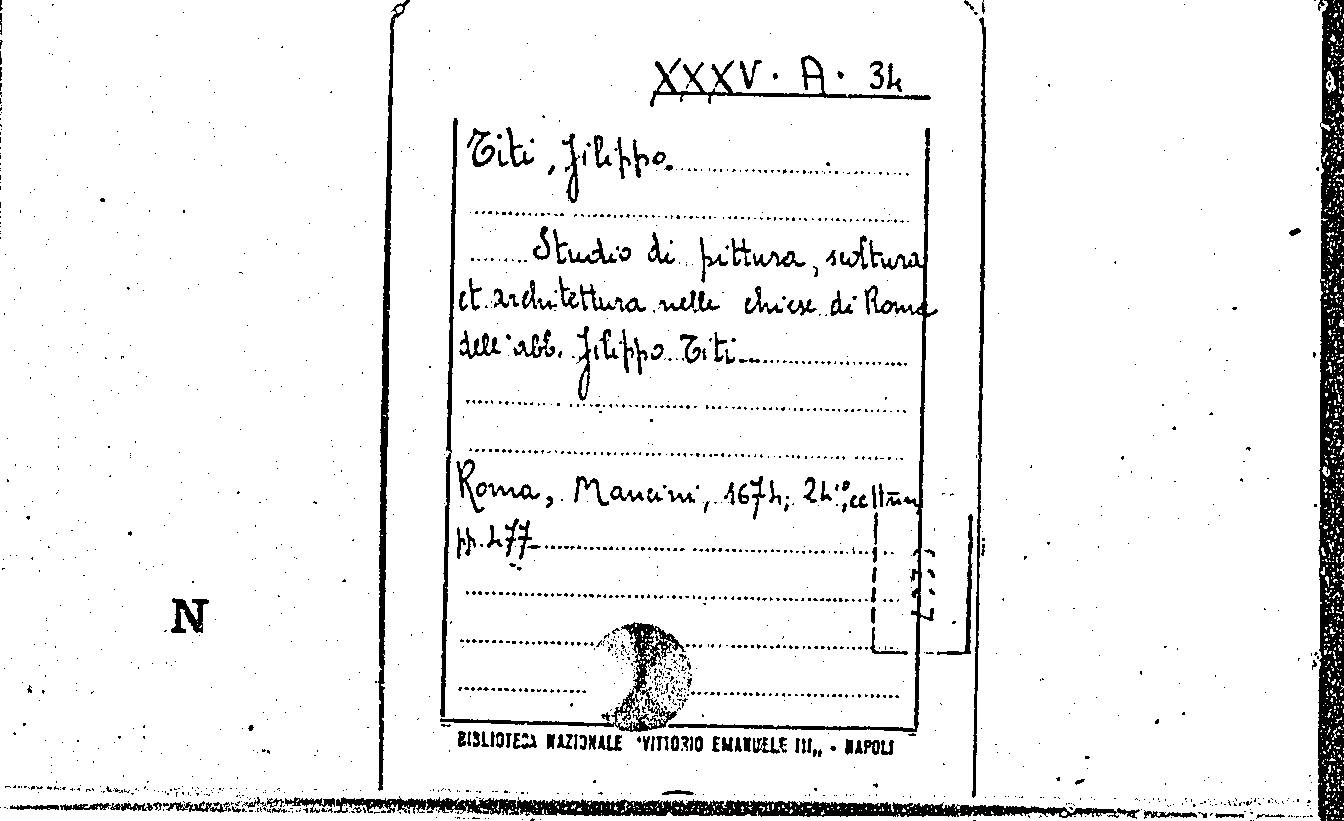 XXXV. A. 34
Titi, Filippo.
Studio di pittura, scoltura
et architettura nelle chiese di Roma
dell'abb. Filippo Titi
Roma, Mancini, 1674; 24°,
pp. 477
N
BIBLIOTECA NAZIONALE "VITTORIO EMANUELE III„ - NAPOLI